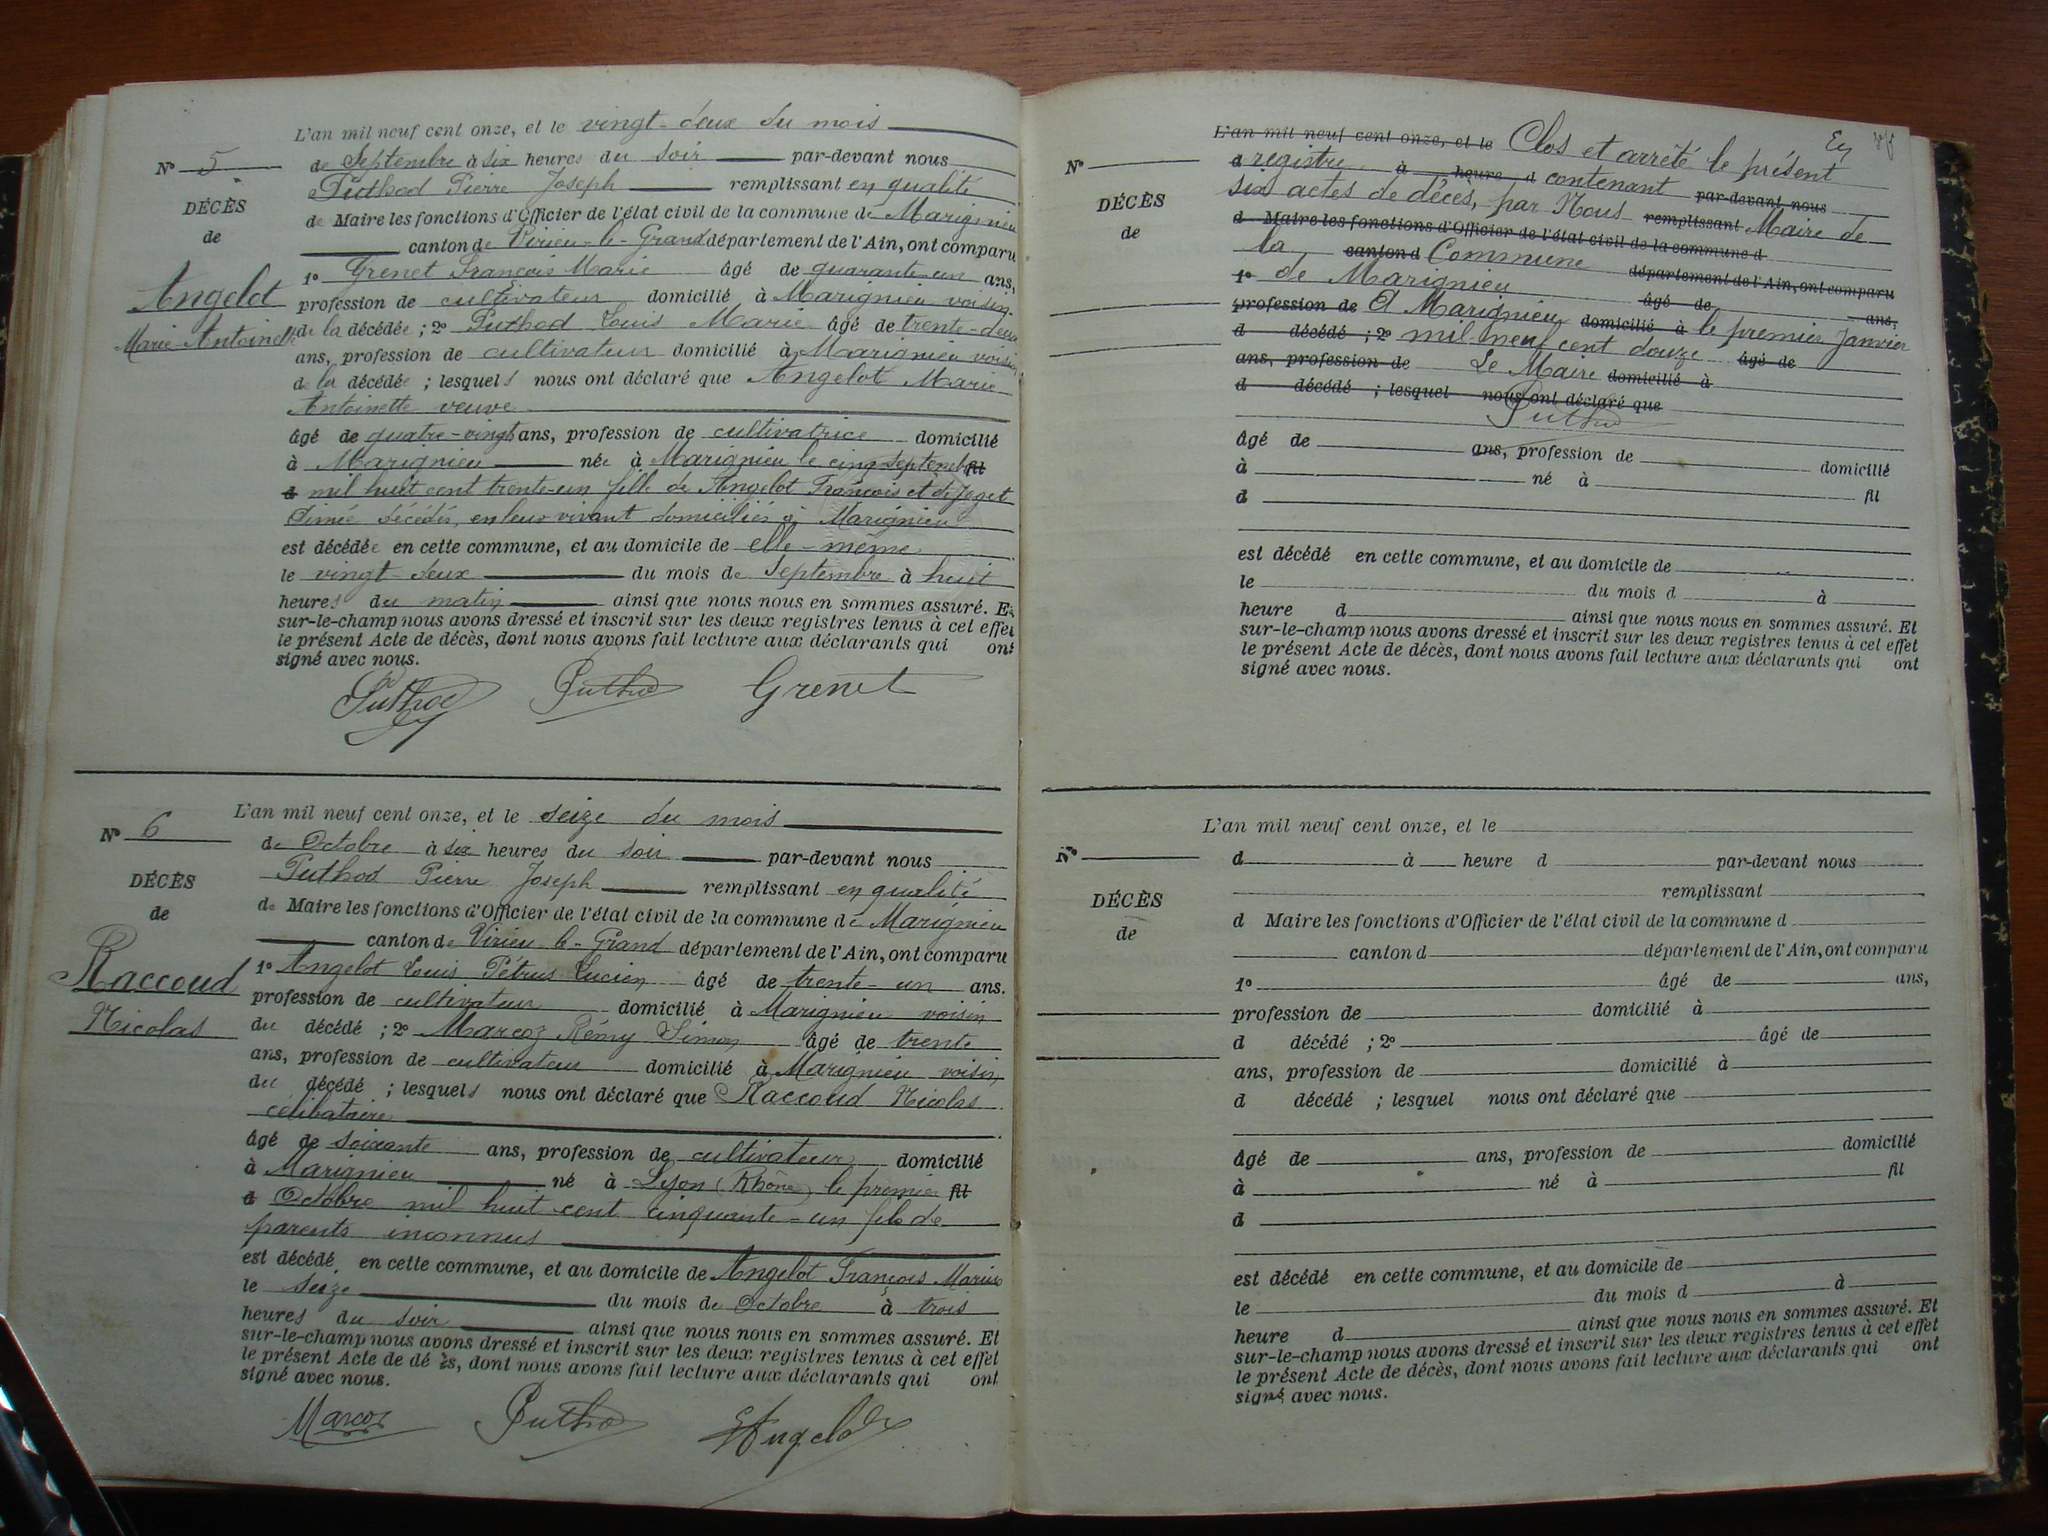 L'an mil neuf cent onze, et le vingt-deux du mois
N° 5
de Septembre à six heures du soir par-devant nous
Puthod Pierre Joseph remplissant en qualité
DÉCÈS
de Maire les fonctions d'Officier de l'état civil de la commune de Marignieu
de
canton de Virieu-le-Grand département de l'Ain, ont comparu
1° Grenet François Marie âgé de quarante-un ans,
Angelot
profession de cultivateur domicilié à Marignieu voisin
Marie Antoinette
de la décédée ; 2° Puthod Louis Marie âgé de trente-deux
ans, profession de cultivateur domicilié à Marignieu voisin
de la décédée ; lesquels nous ont déclaré que Angelot Marie
Antoinette veuve
âgé de quatre-vingts ans, profession de cultivatrice domicilié
à Marignieu née à Marignieu le cinq Septembre fil
d mil huit cent trente-un fille de Angelot François et de
décédés, en leur vivant domiciliés à Marignieu
est décédée en cette commune, et au domicile de elle-même
le vingt-deux du mois de Septembre à huit
heures du matin ainsi que nous nous en sommes assuré. Et
sur-le-champ nous avons dressé et inscrit sur les deux registres tenus à cet effet
le présent Acte de décès, dont nous avons fait lecture aux déclarants qui ont
signé avec nous.
Puthod Puthod Grenet
L'an mil neuf cent onze, et le seize du mois
N° 6
de Octobre à six heures du soir par-devant nous
Puthod Pierre Joseph remplissant en qualité
DÉCÈS
de Maire les fonctions d'Officier de l'état civil de la commune de Marignieu
de
canton de Virieu-le-Grand département de l'Ain, ont comparu
Raccoud
1° Angelot Louis Pétrus Lucien âgé de trente-un ans.
profession de cultivateur domicilié à Marignieu voisin
Nicolas
du décédé ; 2° Marcoz Rémy Simon âgé de trente
ans, profession de cultivateur domicilié à Marignieu voisin
du décédé ; lesquels nous ont déclaré que Raccoud Nicolas
célibataire
âgé de soixante ans, profession de cultivateur domicilié
à Marignieu né à Lyon (Rhône) le premier fil
d Octobre mil huit cent cinquante-un fils de
parents inconnus
est décédé en cette commune, et au domicile de Angelot François Marius
le seize du mois de Octobre à trois
heures du soir ainsi que nous nous en sommes assuré. Et
sur-le-champ nous avons dressé et inscrit sur les deux registres tenus à cet effet
le présent Acte de dé ès, dont nous avons fait lecture aux déclarants qui ont
signé avec nous.
Marcoz Puthod Angelot
L'an mil neuf cent onze, et le Clos et arrêté le présent
N°
d registre à heure d contenant par-devant nous
six actes de décès, par Nous remplissant Maire de
DÉCÈS
d Maire les fonctions d'Officier de l'état civil de la commune d
de
la canton d Commune département de l'Ain, ont comparu
1° de Marignieu âgé de ans,
profession de A Marignieu domicilié à le premier Janvier
d décédé ; 2° mil neuf cent douze âgé de
ans, profession de Le Maire domicilié à
d décédé ; lesquel nous ont déclaré que
Puthod
âgé de ans, profession de domicilié
à né à fil
d
est décédé en cette commune, et au domicile de
le du mois d à
heure d ainsi que nous nous en sommes assuré. Et
sur-le-champ nous avons dressé et inscrit sur les deux registres tenus à cet effet
le présent Acte de décès, dont nous avons fait lecture aux déclarants qui ont
signé avec nous.
L'an mil neuf cent onze, et le
N°
d à heure d par-devant nous
remplissant
DÉCÈS
d Maire les fonctions d'Officier de l'état civil de la commune d
de
canton d département de l'Ain, ont comparu
1° âgé de ans,
profession de domicilié à
d décédé ; 2° âgé de
ans, profession de domicilié à
d décédé ; lesquel nous ont déclaré que
âgé de ans, profession de domicilié
à né à fil
d
est décédé en cette commune, et au domicile de
le du mois d à
heure d ainsi que nous nous en sommes assuré. Et
sur-le-champ nous avons dressé et inscrit sur les deux registres tenus à cet effet
le présent Acte de décès, dont nous avons fait lecture aux déclarants qui ont
signé avec nous.